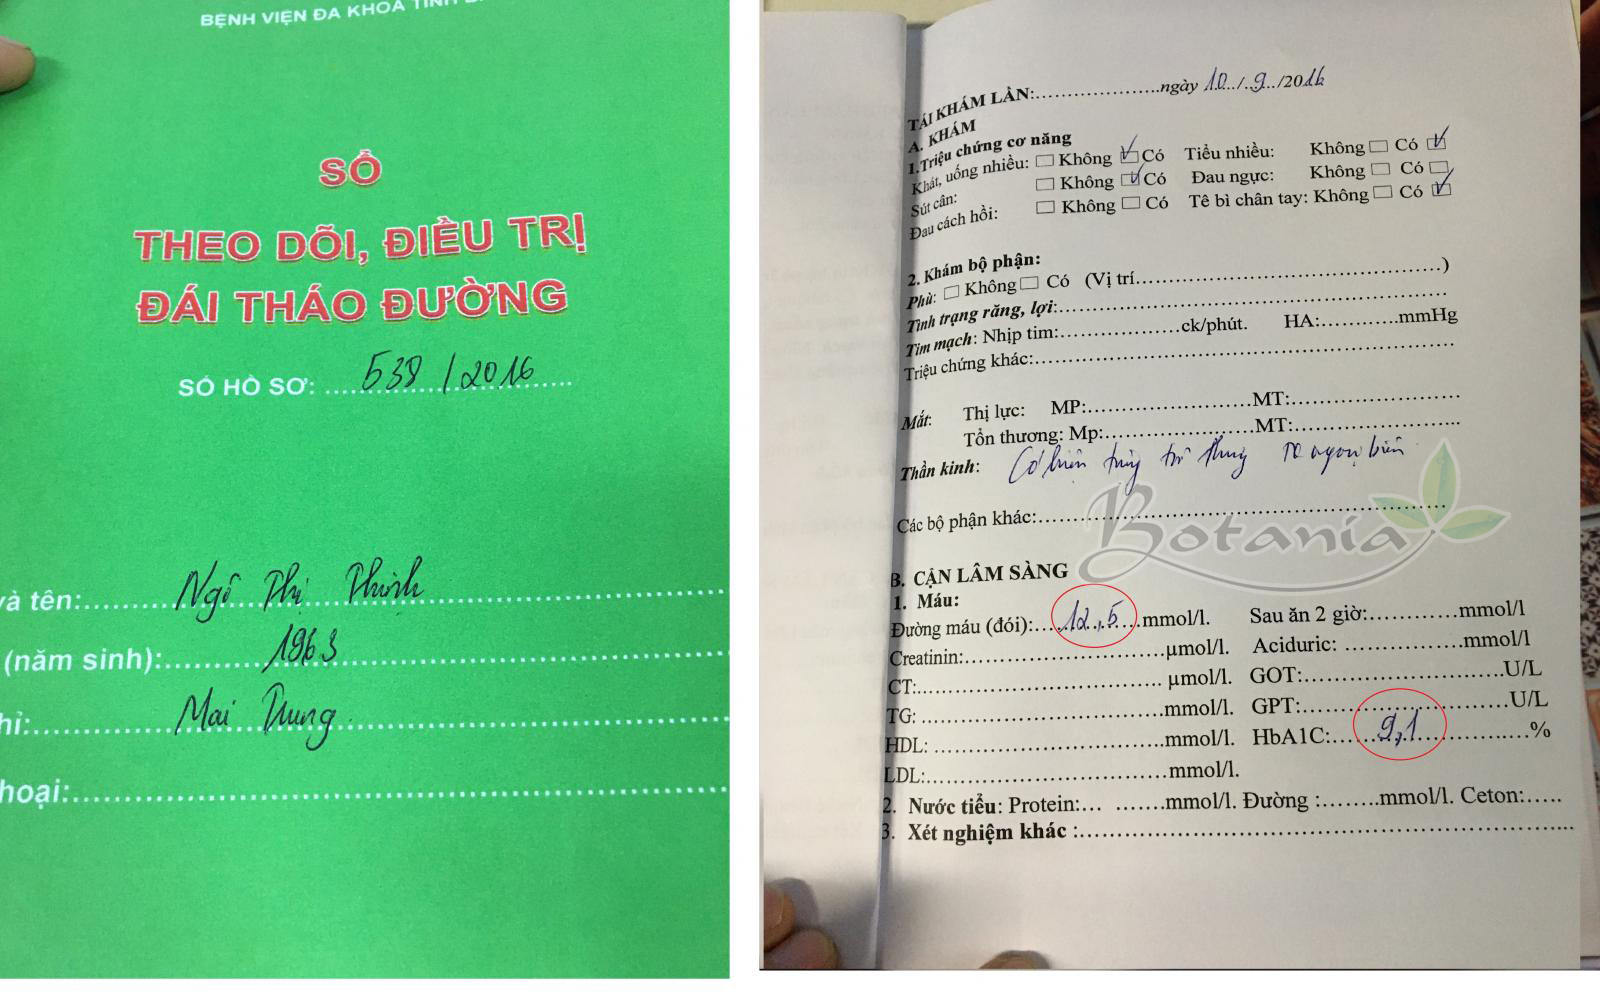 BỆNH VIỆN ĐA KHOA TỈNH
SỔ
THEO DÕI, ĐIỀU TRỊ
ĐÁI THÁO ĐƯỜNG
SỐ HỒ SƠ: ....538/2016....
và tên:....Ngô Thị Thịnh....
(năm sinh):....1963....
hỉ:....Mai Trung....
hoại:....
TÁI KHÁM LẦN:....................ngày 10../..9.../2016
A. KHÁM
1.Triệu chứng cơ năng
Khát, uống nhiều: ☐ Không ☑ Có Tiểu nhiều: Không ☐ Có ☑
Sút cân: ☐ Không ☑ Có Đau ngực: Không ☐ Có ☐
Đau cách hồi: ☐ Không ☐ Có Tê bì chân tay: Không ☐ Có ☑
2. Khám bộ phận:
Phù: ☐ Không ☐ Có (Vị trí....................)
Tình trạng răng, lợi:....................
Tim mạch: Nhịp tim:....................ck/phút. HA:............mmHg
Triệu chứng khác:....................
Mắt: Thị lực: MP:....................MT:....................
Tổn thương: Mp:....................MT:....................
Thần kinh: Có hiện tượng ngoại biên
Các bộ phận khác:....................
Botania
B. CẬN LÂM SÀNG
1. Máu:
Đường máu (đói):....12,5....mmol/l. Sau ăn 2 giờ:............mmol/l
Creatinin:....................µmol/l. Aciduric: ....................mmol/l
CT:.................... µmol/l. GOT:....................U/L
TG: ....................mmol/l. GPT:....................U/L
HDL: ....................mmol/l. HbA1C:....9,1....%
LDL:....................mmol/l.
2. Nước tiểu: Protein:... .......mmol/l. Đường :........mmol/l. Ceton:.....
3. Xét nghiệm khác :....................